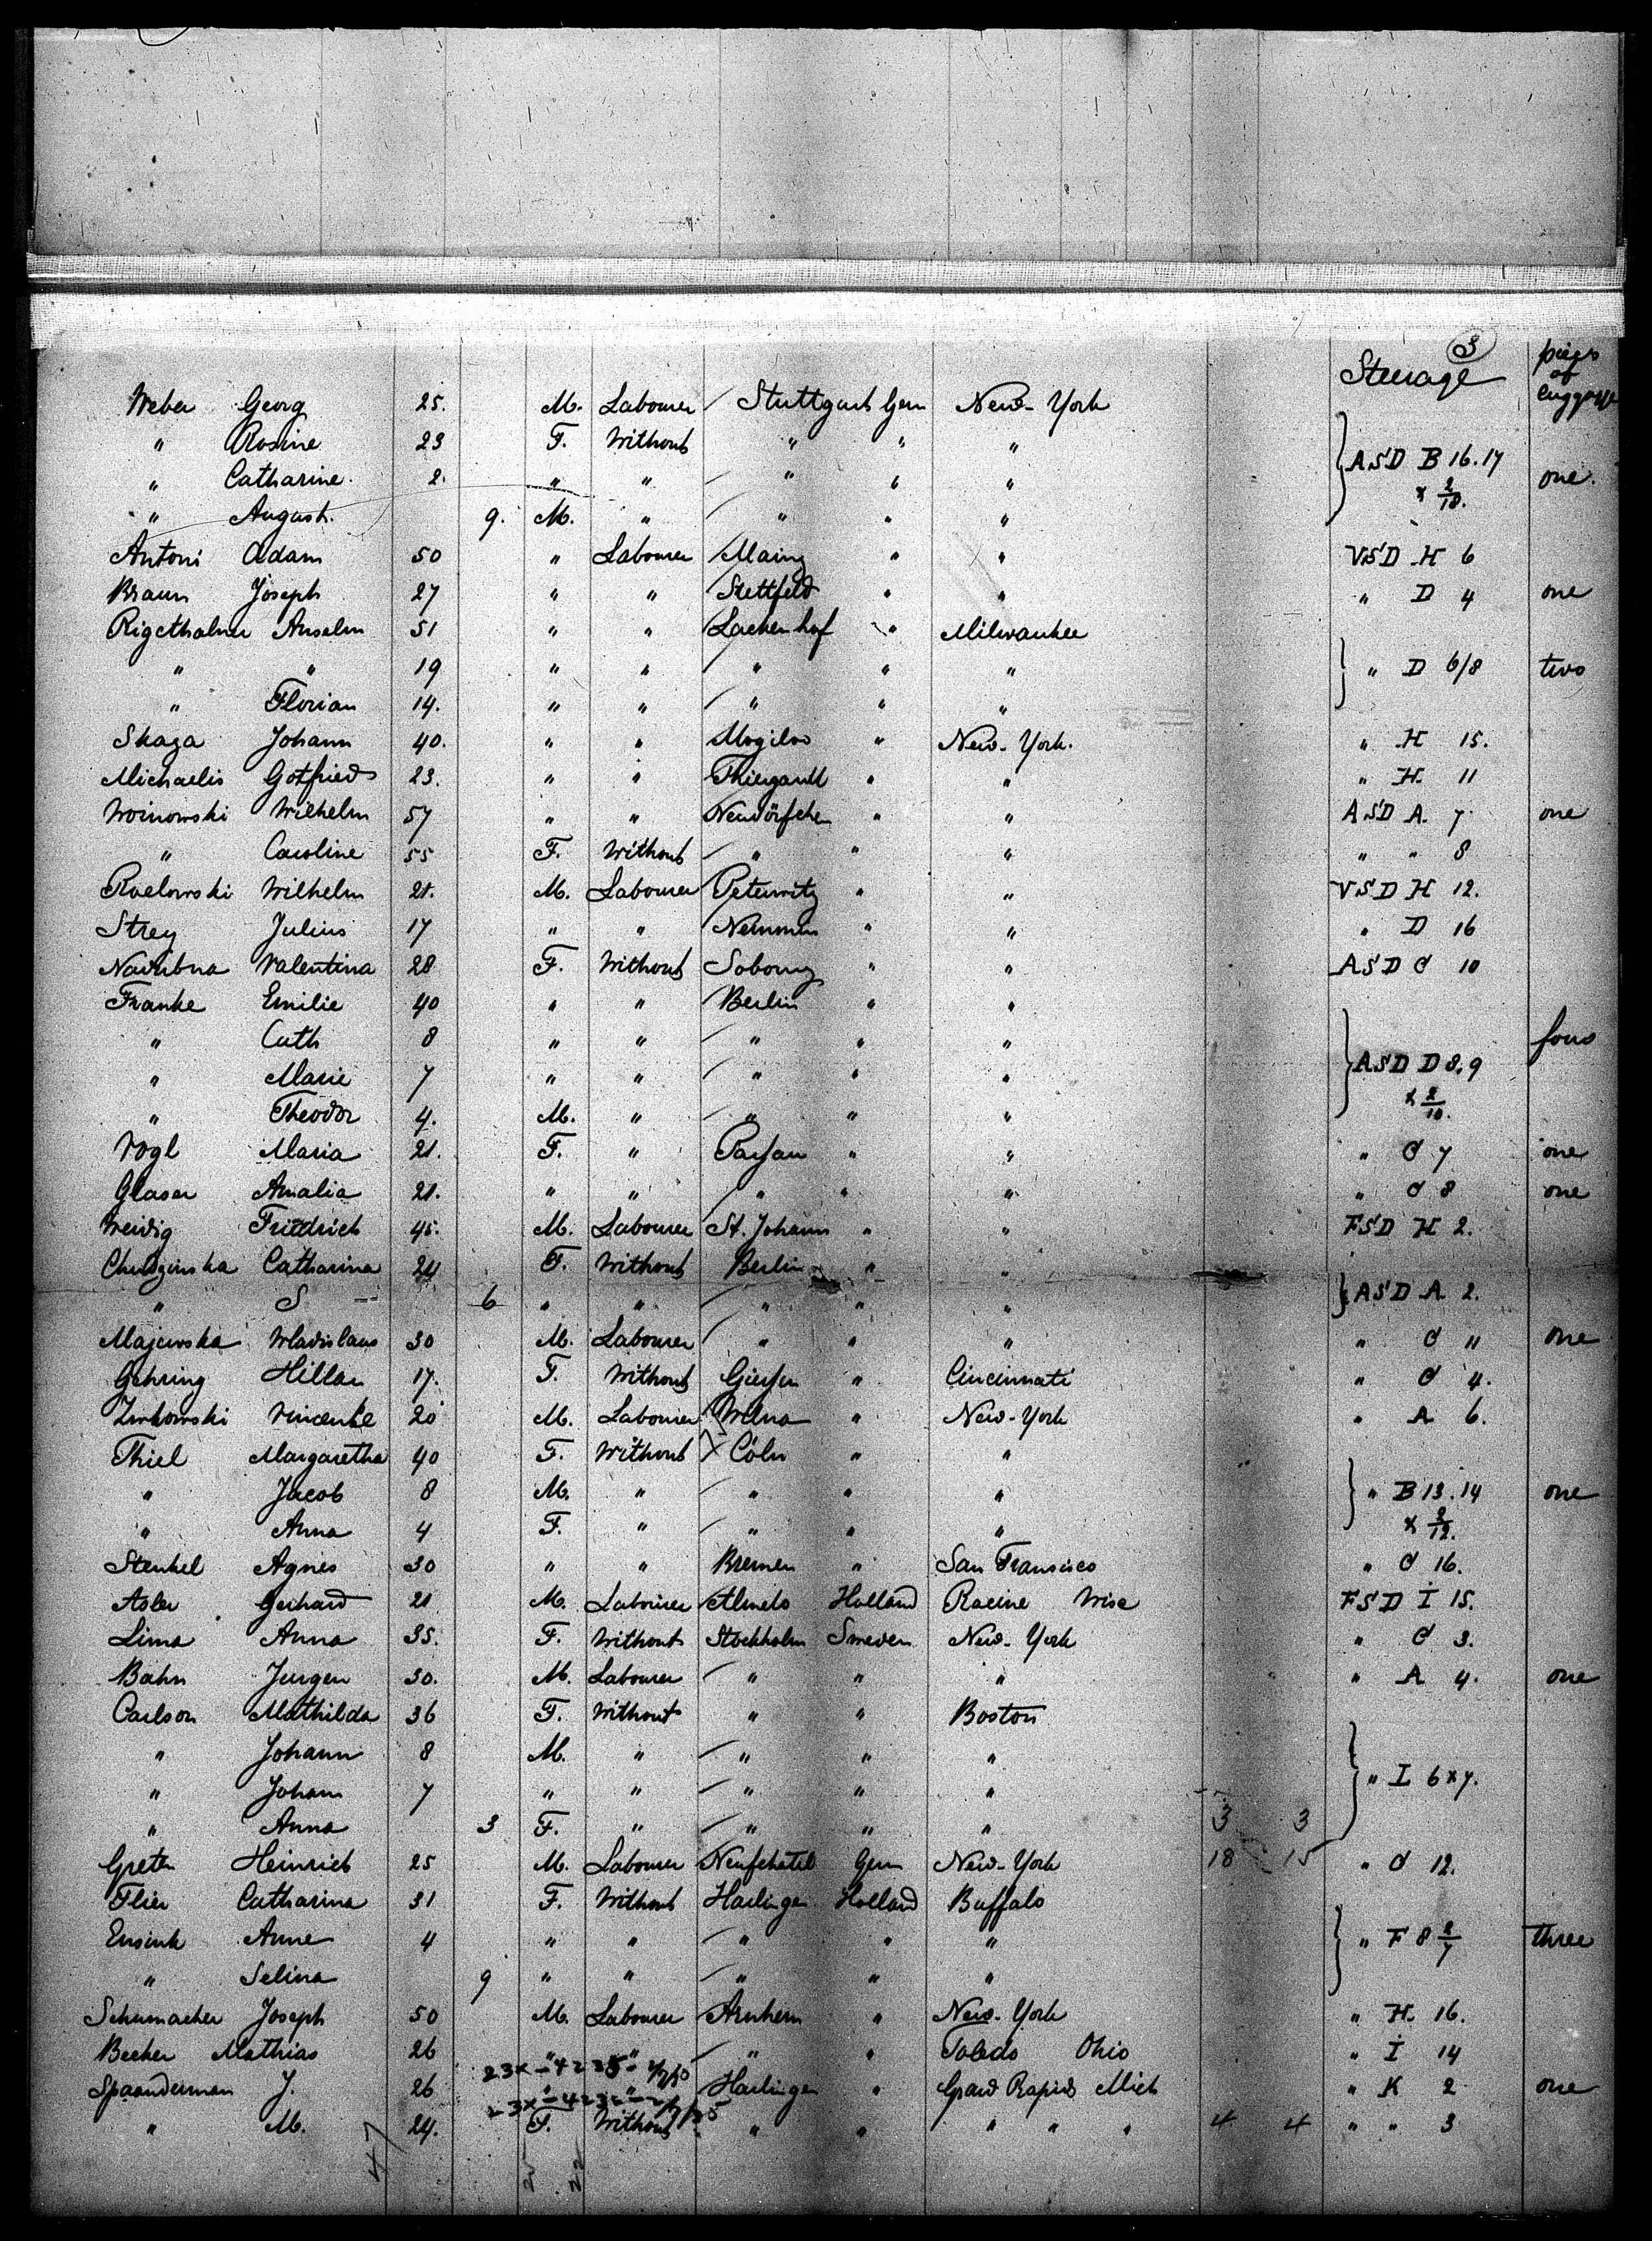 3
Steerage pieces of luggage
Weber Georg 25. M. Labourer Stuttgart Gern New-York
" Rosine 23 F. Without " " "
ASD B 16.17
" Catharine. 2. " " " " " one.
& 2/10.
" August. 9. M. " " " "
Antoni Adam 50 " Labourer Mainz " " VSD H 6
Braun Joseph 27 " " Stettfeld " " " D 4 one
Anselm 51 " " Lackenhof " Milwaukee
" " 19 " " " " " " D 6/8 two
" Florian 14. " " " " "
Skaza Johann 40. " " Mogilno " New-York. " H 15.
Michaelis Gotfried 23. " " " " " H. 11
Woinowski Wilhelm 57 " " Neudörfchen " " ASD A. 7 one
" Caroline 55 F. Without " " " " " 8
Wilhelm 21. M. Labourer Peterwitz " " VSD H 12.
Strey Julius 17 " " " " " D 16
Valentina 28 F. Without " " ASD C 10
Franke Emilie 40 " " Berlin " "
" Cath 8 " " " " " four
" Marie 7 " " " " " ASD D 8,9
& 2/10.
" Theodor 4. M. " " " "
Vogl Maria 21. F. " Passau " " " C 7 one
Glaser Amalia 21. " " " " " " C 8 one
Weidig Friedrich 45. M. Labourer St. Johann " " FSD H 2.
Catharina 24 F. Without Berlin " "
" S -- 6 " " " " " ASD A 2.
Majewska Wladislaus 30 M. Labourer " " " " C 11 one
Gehring Hillar 17. F. Without Giessen " Cincinnati " C 4.
20 M. Labourer Wilna " New-York " A 6.
Thiel Margaretha 40 F. Without Cöln " "
" Jacob 8 M. " " " " " B 13.14 one
& 2/12.
" Anna 4 F. " " " "
Stenkel Agnes 30 " " Bremen " San Fransisco " C 16.
Asler Gerhard 21 M. Labourer Almelo Holland Racine Wisc FSD I 15.
Lima Anna 35. F. Without Stockholm Sweden New-York " C 3.
Bahn Jurgen 30. M. Labourer " " " " A 4. one
Carlson Mathilda 36 F. Without " " Boston
" Johann 8 M. " " " "
" Johann 7 " " " " " " I 6 & 7.
" Anna 3 F. " " " " 3 3
Greten Heinrich 25 M. Labourer Neufchatel Gern New-York 18 15 " C 12.
Flier Catharina 31 F. Without Harlingen Holland Buffalo
Ensink Anne 4 " " " " " " F 8 2/7 three
" Selina 9 " " " " "
Schumacher Joseph 50 M. Labourer Arnhem " New-York " H. 16.
Becker Mathias 26 " " " " Toledo Ohio " I 14
Spaanderman J. 26 " " Harlingen " Grand Rapids Mich " K 2 one
" M. 24. F. Without " " " " " 4 4 " " 3
47 25 22